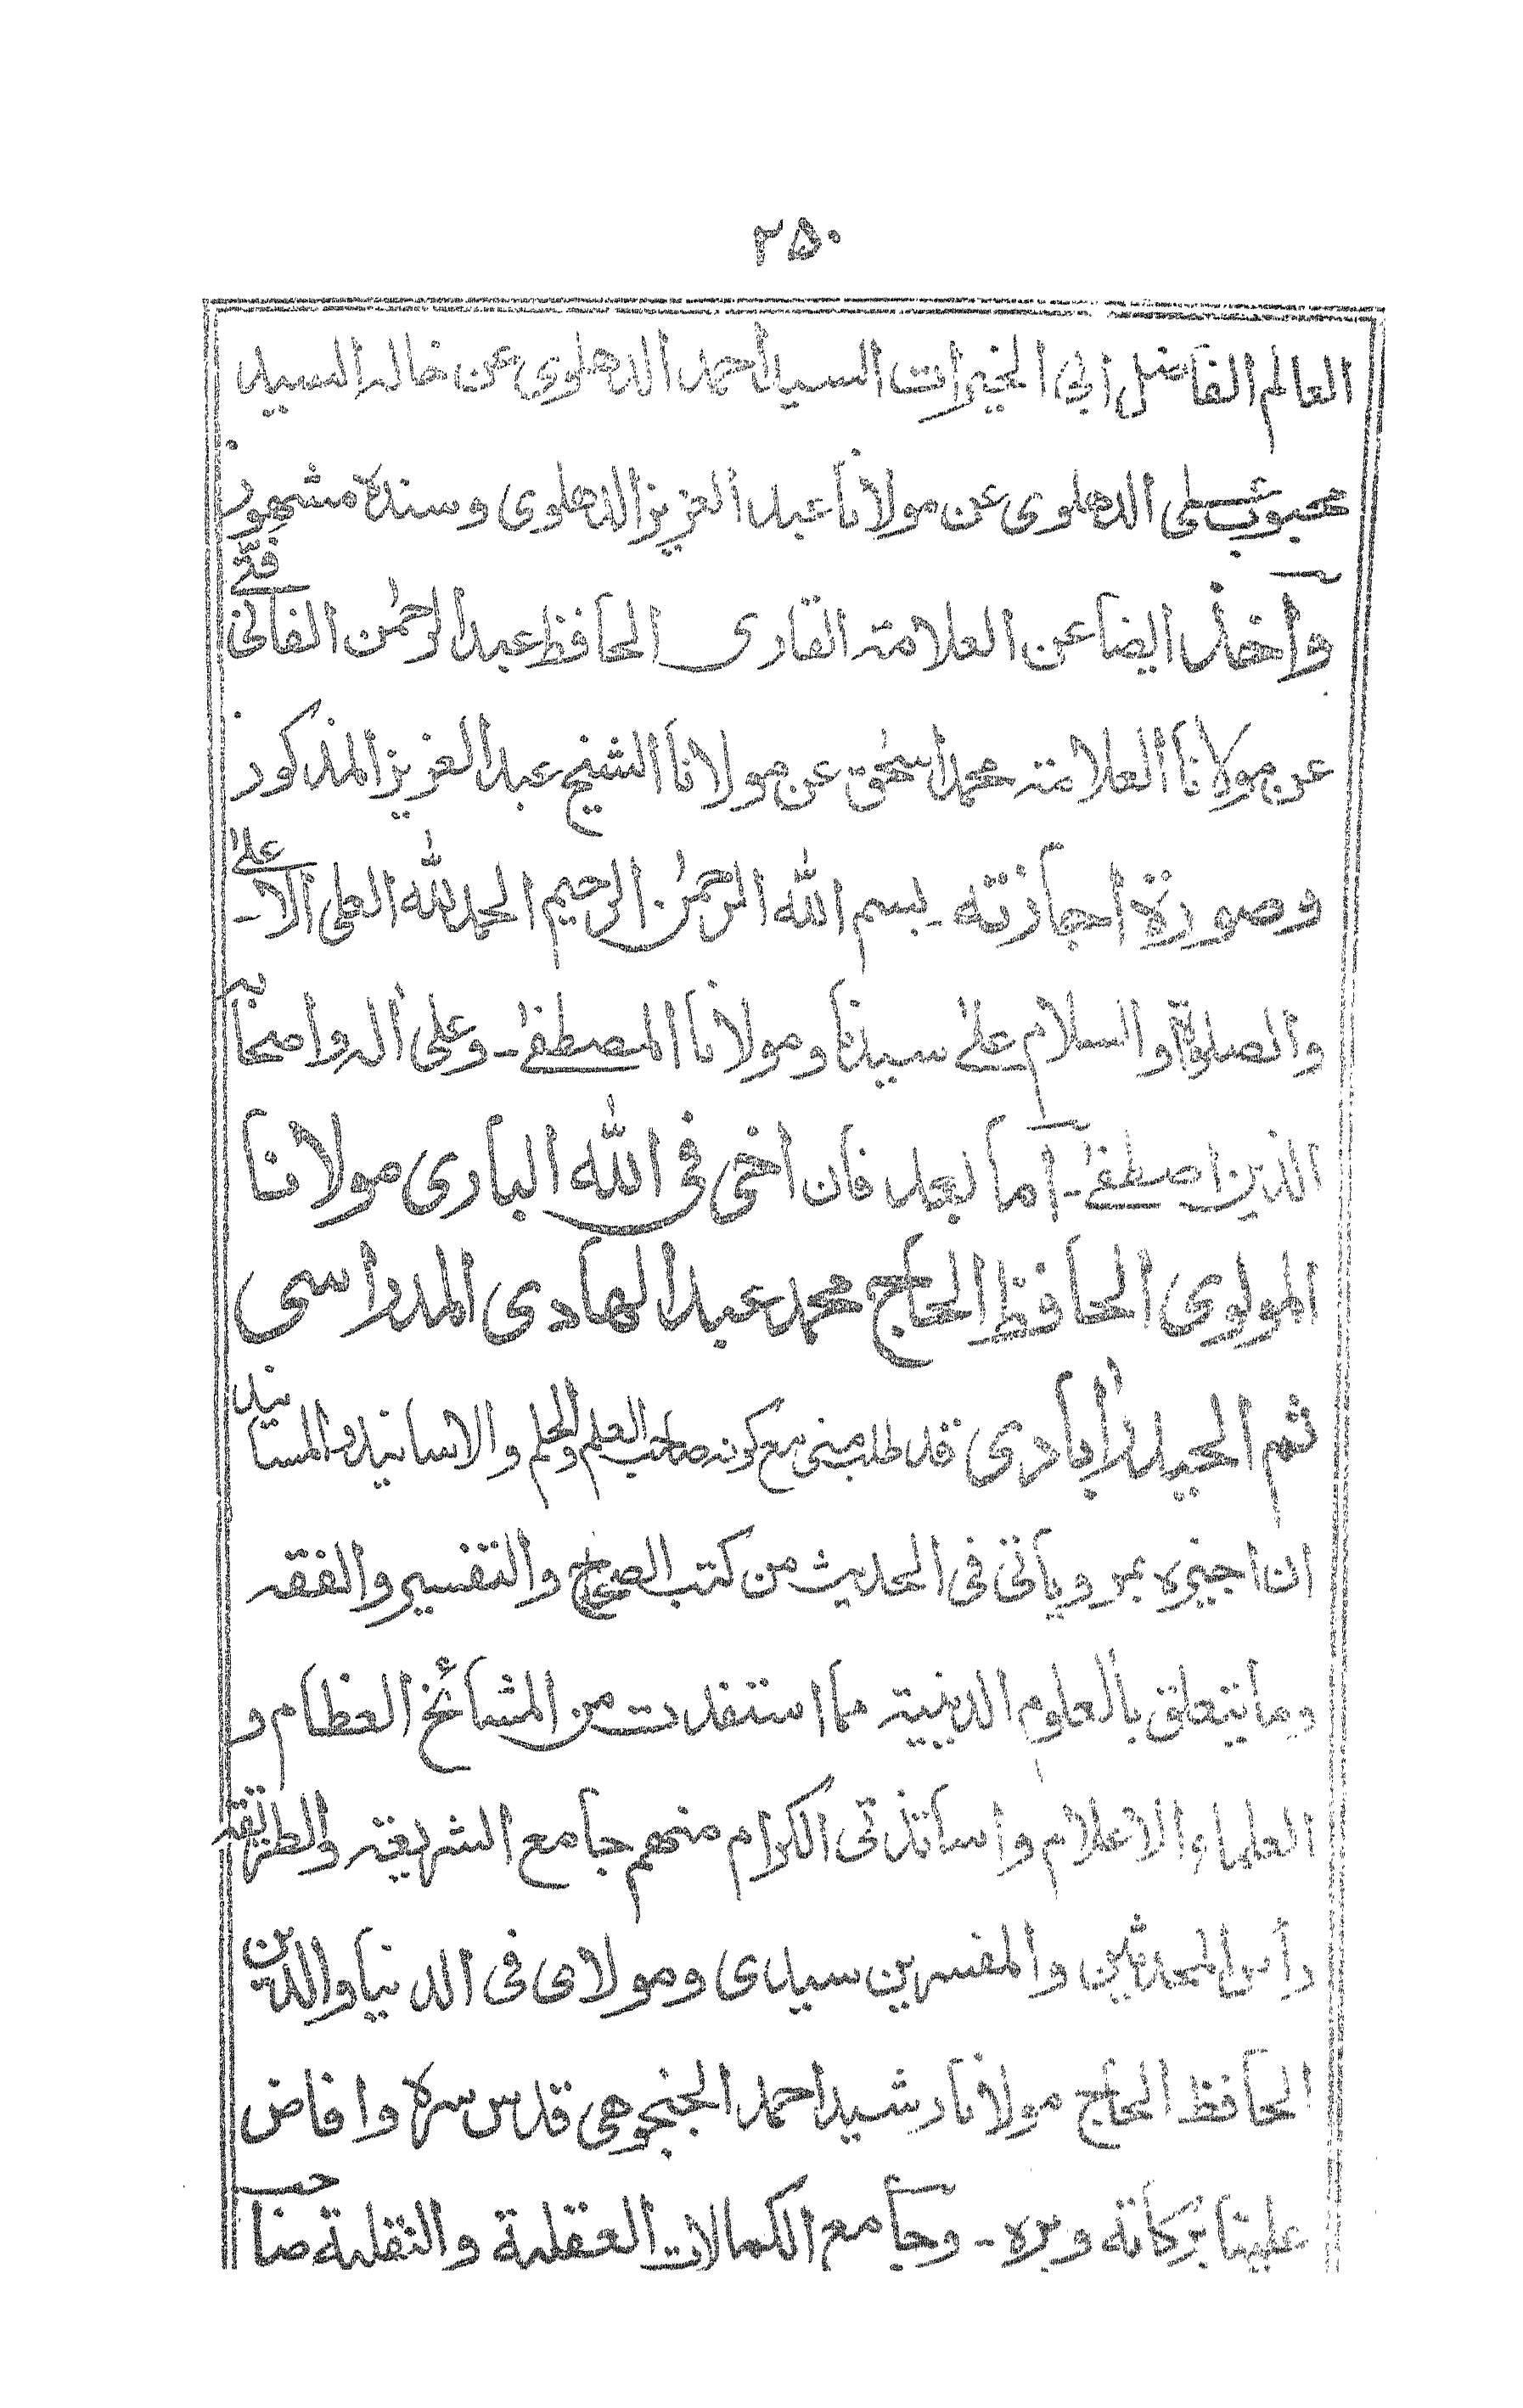 ۲۵۰
العالم الفاضل ابی الخیرات السید احمد الدهلوی عن خاله السید
محبوب علی الدهلوی عن مولانا عبد العزیز الدهلوی وسنده مشهور
واخذ ایضا عن العلامة القاری الحافظ عبد الرحمٰن الفانی فتی
عن مولانا العلامة محمد اسحٰق عن مولانا الشیخ عبد العزیز المذکور
وصورة اجازته ـ بسم الله الرحمٰن الرحیم الحمد لله العلی الاعلیٰ ـ
والصلوة والسلام علیٰ سیدنا ومولانا المصطفیٰ ـ وعلی اٰله واصحابه
الذین اصطفیٰ ـ اما بعد فان اخی فی الله الباری مولانا
المولوی الحافظ الحاج محمد عبد الهادی المدراسی
ثم الحیدرآبادی قد طلب منی مع کونه صاحب العلم والحلم والاسانید والمسانید
ان اجیزه بمرویاتی فی الحدیث من کتب الصحاح والتفسیر والفقه
وما یتعلق بالعلوم الدینیة مما استفدت من المشائخ العظام و
العلماء الاعلام واساتذتی الکرام منهم جامع الشریعة والطریقة
رأس المحدثین والمفسرین سیدی ومولای فی الدنیا والدین
الحافظ الحاج مولانا رشید احمد الجنجوهی قدس سره وافاض
علینا برکاته وبره ـ وجامع الکمالات العقلیة والنقلیة صاحب